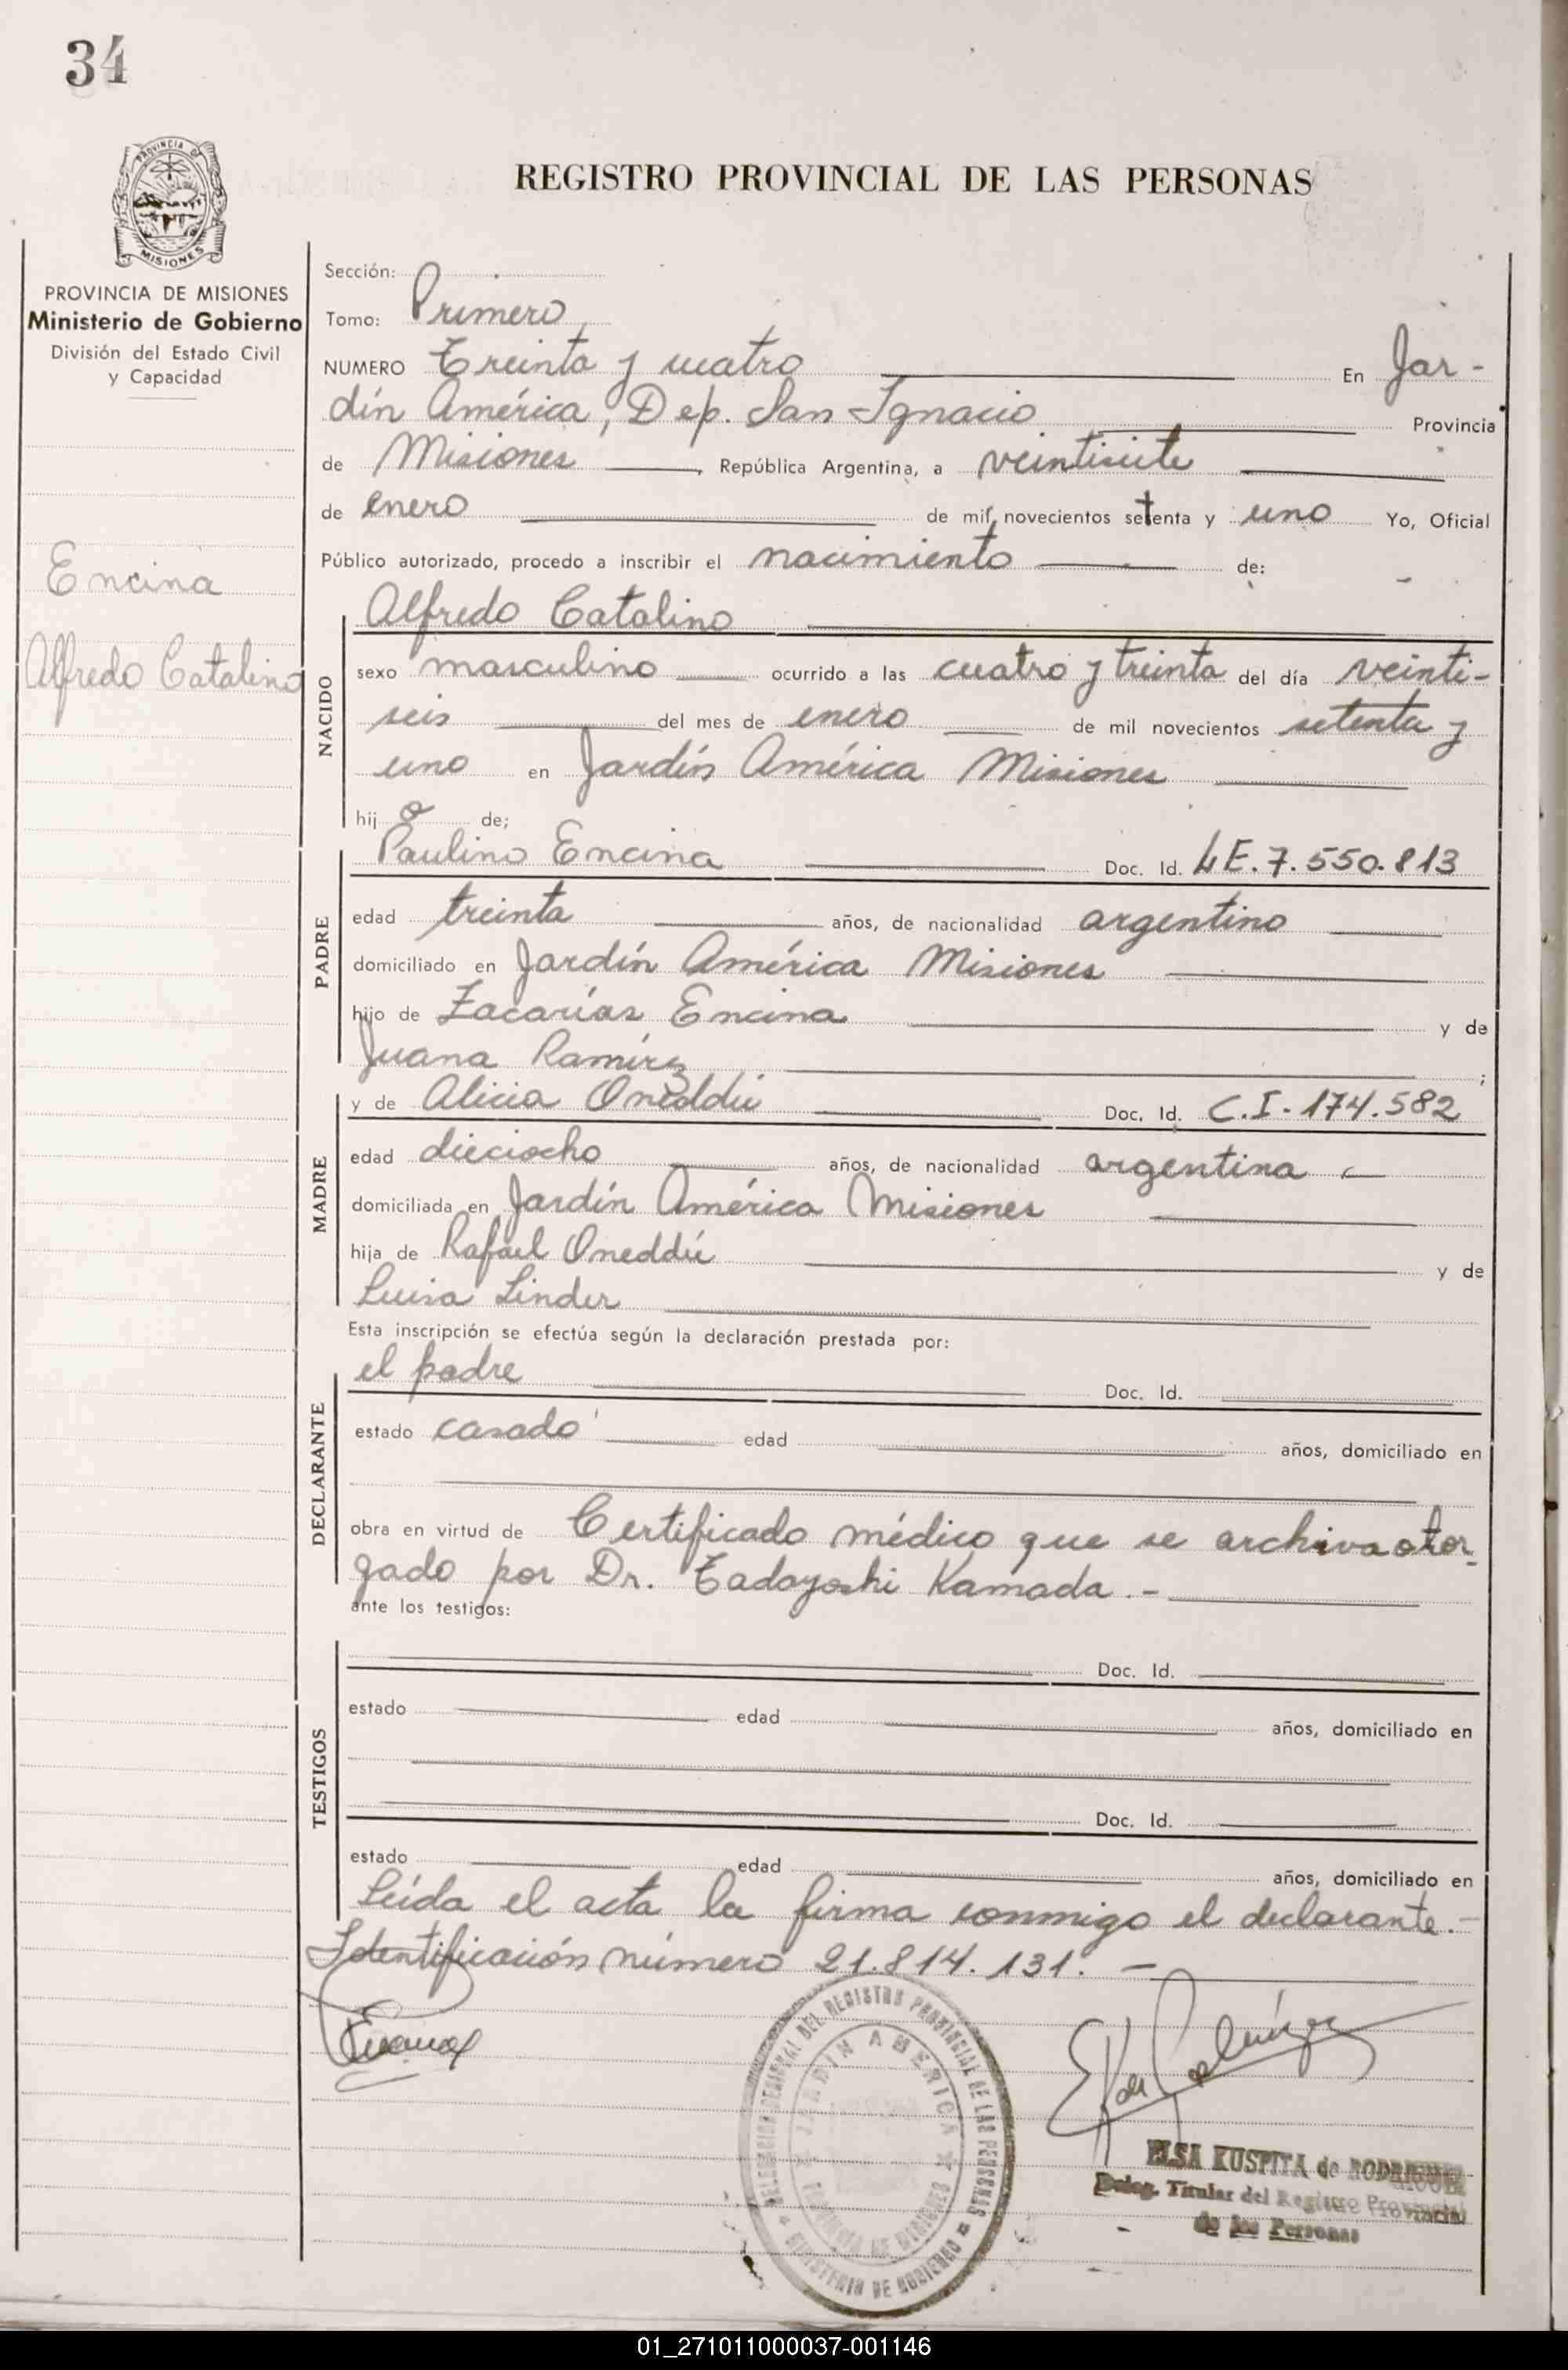 34
PROVINCIA DE
MISIONES
REGISTRO PROVINCIAL DE LAS PERSONAS
PROVINCIA DE MISIONES
Ministerio de Gobierno
División del Estado Civil
y Capacidad
Encina
Alfredo Catalino
Sección:
Tomo: Primero
NUMERO Treinta y cuatro En Jar-
dín América, Dep. San Ignacio Provincia
de Misiones, República Argentina, a veintisiete
de enero de mil novecientos setenta y uno Yo, Oficial
Público autorizado, procedo a inscribir el nacimiento de:
NACIDO
Alfredo Catalino
sexo masculino ocurrido a las cuatro y treinta del día veinti-
seis del mes de enero de mil novecientos setenta y
uno en Jardín América Misiones
hij o de;
PADRE
Paulino Encina Doc. Id. LE. 7.550.813
edad treinta años, de nacionalidad argentino
domiciliado en Jardín América Misiones
hijo de Zacarías Encina y de
Juana Ramírez ;
MADRE
y de Alicia Oneddú Doc. Id. C.I. 174.582
edad dieciocho años, de nacionalidad argentina
domiciliada en Jardín América Misiones
hija de Rafael Oneddú y de
Luisa Linder
Esta inscripción se efectúa según la declaración prestada por:
DECLARANTE
el padre Doc. Id.
estado casado edad años, domiciliado en
obra en virtud de Certificado médico que se archiva otor-
gado por Dr. Tadayoshi Kamada.-
ante los testigos:
TESTIGOS
Doc. Id.
estado edad años, domiciliado en
Doc. Id.
estado edad años, domiciliado en
Leída el acta la firma conmigo el declarante.-
Identificación número 21.814.131. -
DELEGACION REGIONAL DEL REGISTRO PROVINCIAL DE LAS PERSONAS
MINISTERIO DE GOBIERNO
JARDIN AMERICA
PROVINCIA DE MISIONES
ELSA KUSPITA de RODRIGUEZ
Deleg. Titular del Registro Provincial
de las Personas
01_271011000037-001146